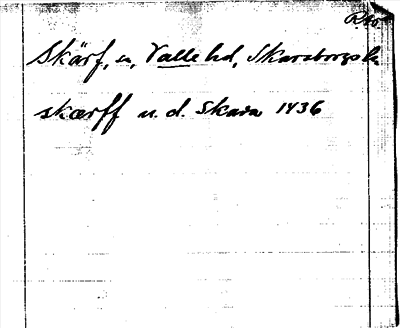 Skärf, n, Valle hd, Skaraborgs l.
skærff n. d. Skara 1436